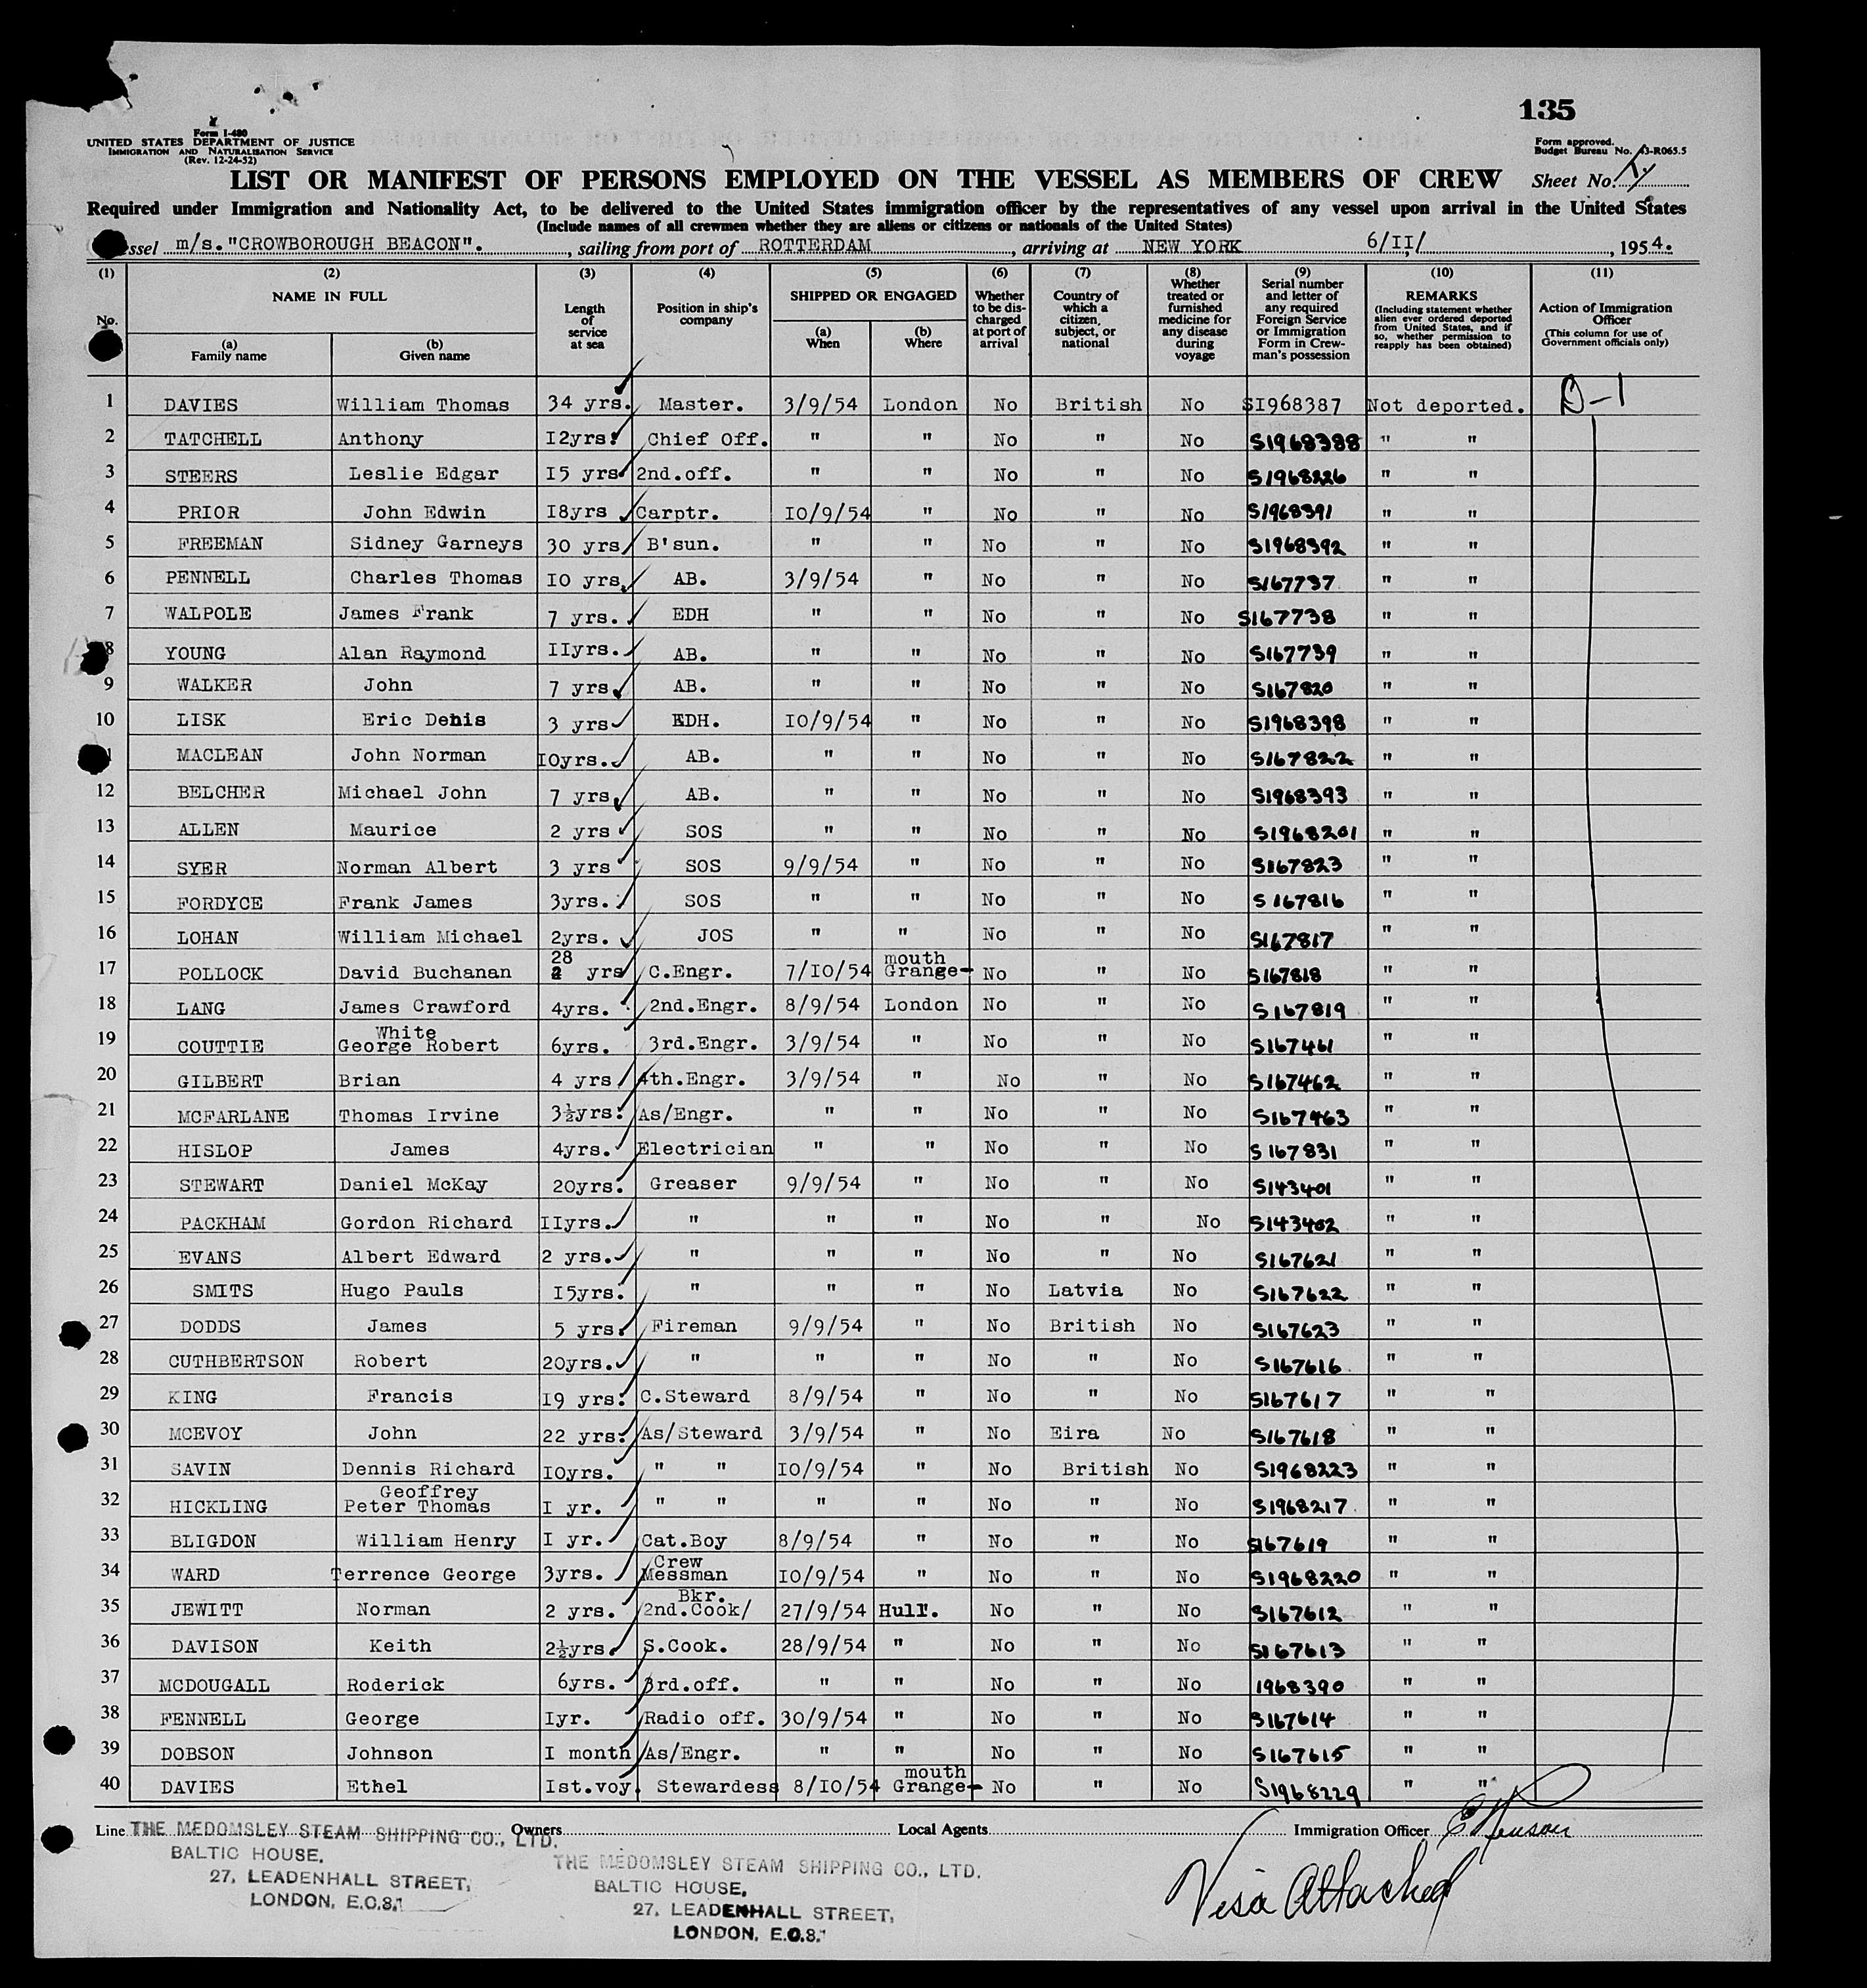 135
Form I-480
UNITED STATES DEPARTMENT OF JUSTICE
IMMIGRATION AND NATURALISATION SERVICE
(Rev. 12-24-52)
Form approved.
Budget Bureau No. 43-R065.5
LIST OR MANIFEST OF PERSONS EMPLOYED ON THE VESSEL AS MEMBERS OF CREW
Sheet No.
Required under Immigration and Nationality Act, to be delivered to the United States immigration officer by the representatives of any vessel upon arrival in the United States
(Include names of all crewmen whether they are aliens or citizens or nationals of the United States)
ssel m/s. "CROWBOROUGH BEACON". , sailing from port of ROTTERDAM , arriving at NEW YORK 6/II/ , 1954.
(1) (2) (3) (4) (5) (6) (7) (8) (9) (10) (11)
No. NAME IN FULL (a) Family name (b) Given name Length of service at sea Position in ship's company SHIPPED OR ENGAGED (a) When (b) Where Whether to be discharged at port of arrival Country of which a citizen, subject, or national Whether treated or furnished medicine for any disease during voyage Serial number and letter of any required Foreign Service or Immigration Form in Crewman's possession REMARKS (Including statement whether alien ever ordered deported from United States, and if so, whether permission to reapply has been obtained) Action of Immigration Officer (This column for use of Government officials only)
1 DAVIES William Thomas 34 yrs. Master. 3/9/54 London No British No SI968387 Not deported. D-1
2 TATCHELL Anthony I2yrs. Chief Off. " " No " No S1968388 " "
3 STEERS Leslie Edgar I5 yrs 2nd.off. " " No " No S1968226 " "
4 PRIOR John Edwin I8yrs Carptr. IO/9/54 " No " No S1968391 " "
5 FREEMAN Sidney Garneys 30 yrs B'sun. " " No " No S1968392 " "
6 PENNELL Charles Thomas IO yrs. AB. 3/9/54 " No " No S167737 " "
7 WALPOLE James Frank 7 yrs. EDH " " No " No S167738 " "
8 YOUNG Alan Raymond IIyrs. AB. " " No " No S167739 " "
9 WALKER John 7 yrs AB. " " No " No S167820 " "
10 LISK Eric Denis 3 yrs EDH. IO/9/54 " No " No S1968398 " "
1 MACLEAN John Norman IOyrs. AB. " " No " No S167822 " "
12 BELCHER Michael John 7 yrs AB. " " No " No S1968393 " "
13 ALLEN Maurice 2 yrs SOS " " No " No S1968201 " "
14 SYER Norman Albert 3 yrs SOS 9/9/54 " No " No S167823 " "
15 FORDYCE Frank James 3yrs. SOS " " No " No S167816 " "
16 LOHAN William Michael 2yrs. JOS " " No " No S167817 " "
17 POLLOCK David Buchanan 28 yrs C.Engr. 7/IO/54 Grange-mouth No " No S167818 " "
18 LANG James Crawford 4yrs. 2nd.Engr. 8/9/54 London No " No S167819 " "
19 COUTTIE George White Robert 6yrs. 3rd.Engr. 3/9/54 " No " No S167461 " "
20 GILBERT Brian 4 yrs 4th.Engr. 3/9/54 " No " No S167462 " "
21 MCFARLANE Thomas Irvine 3½yrs. As/Engr. " " No " No S167463 " "
22 HISLOP James 4yrs. Electrician " " No " No S167831 " "
23 STEWART Daniel McKay 20yrs. Greaser 9/9/54 " No " No S143401 " "
24 PACKHAM Gordon Richard IIyrs. " " " No " No S143402 " "
25 EVANS Albert Edward 2 yrs. " " " No " No S167621 " "
26 SMITS Hugo Pauls I5yrs. " " " No Latvia No S167622 " "
27 DODDS James 5 yrs. Fireman 9/9/54 " No British No S167623 " "
28 CUTHBERTSON Robert 20yrs. " " " No " No S167616 " "
29 KING Francis I9 yrs. C.Steward 8/9/54 " No " No S167617 " "
30 MCEVOY John 22 yrs. As/Steward 3/9/54 " No Eira No S167618 " "
31 SAVIN Dennis Richard IOyrs. " " IO/9/54 " No British No S1968223 " "
32 HICKLING Geoffrey Peter Thomas I yr. " " " " No " No S1968217 " "
33 BLIGDON William Henry I yr. Cat.Boy 8/9/54 " No " No S167619 " "
34 WARD Terrence George 3yrs. Crew Messman IO/9/54 " No " No S1968220 " "
35 JEWITT Norman 2 yrs. 2nd.Cook/ Bkr. 27/9/54 Hull. No " No S167612 " "
36 DAVISON Keith 2½yrs. S.Cook. 28/9/54 " No " No S167613 " "
37 MCDOUGALL Roderick 6yrs. 3rd.off. " " No " No 1968390 " "
38 FENNELL George Iyr. Radio off. 30/9/54 " No " No S167614 " "
39 DOBSON Johnson I month As/Engr. " " No " No S167615 " "
40 DAVIES Ethel Ist.voy. Stewardess 8/IO/54 Grange-mouth No " No S1968229 " "
Line THE MEDOMSLEY STEAM SHIPPING CO., LTD. Owners Local Agents Immigration Officer
BALTIC HOUSE,
27, LEADENHALL STREET,
LONDON, E.C.3.
THE MEDOMSLEY STEAM SHIPPING CO., LTD.
BALTIC HOUSE,
27, LEADENHALL STREET,
LONDON, E.C.3.
Visa Attached